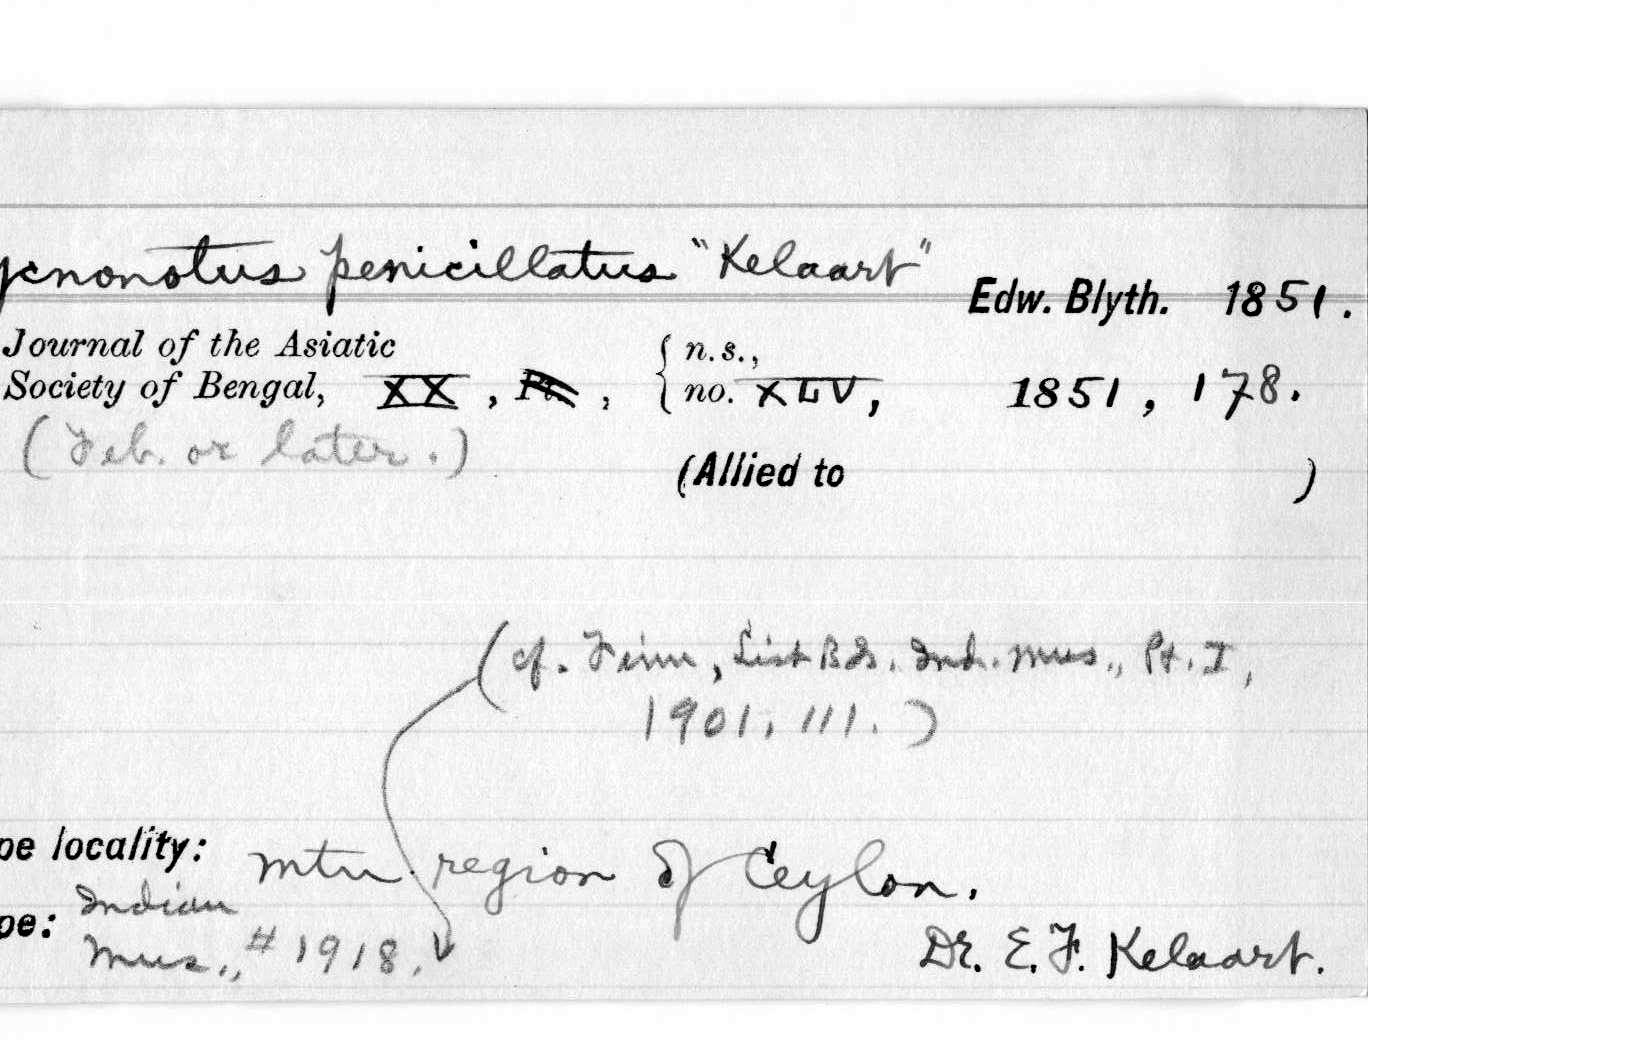 ycnonotus penicillatus "Kelaart" Edw. Blyth. 1851.
Journal of the Asiatic { n.s.,
Society of Bengal, XX, Pt., no. XLV, 1851, 178.
(Feb. or later.)
(Allied to )
(cf. Finn, List Bds. Ind. Mus., Pt. I,
1901, 111.)
pe locality: mtn. region of Ceylon.
pe: Indian
Mus., #1918.
Dr. E. F. Kelaart.